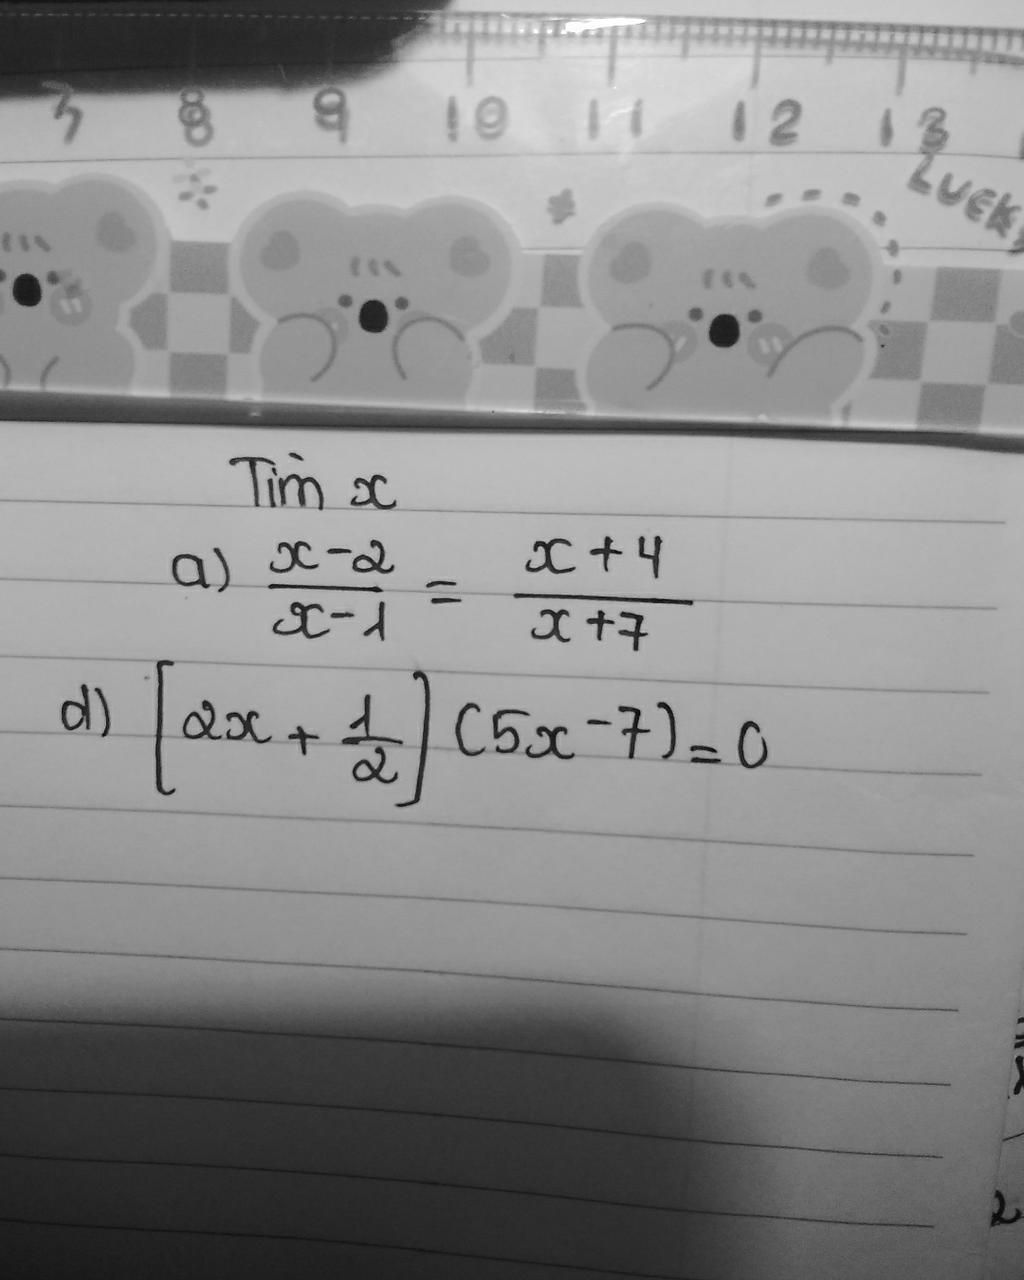 7 8 9 10 11 12 13
LUCK
Tìm x
a) \frac{x-2}{x-1} = \frac{x+4}{x+7}
d) [2x + \frac{1}{2}] (5x-7) = 0
2